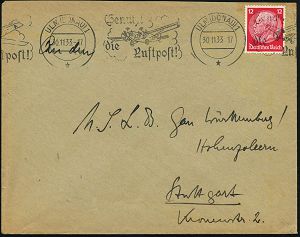 ULM (DONAU)
30.11.33. 17
Benutzt
die Luftpost!
ULM (DONAU)
30.11.33. 17
12 12
Deutsches Reich
An den
N.S.L.B. Gau Württemberg/
Hohenzollern
Stuttgart
Kronenstr. 2.